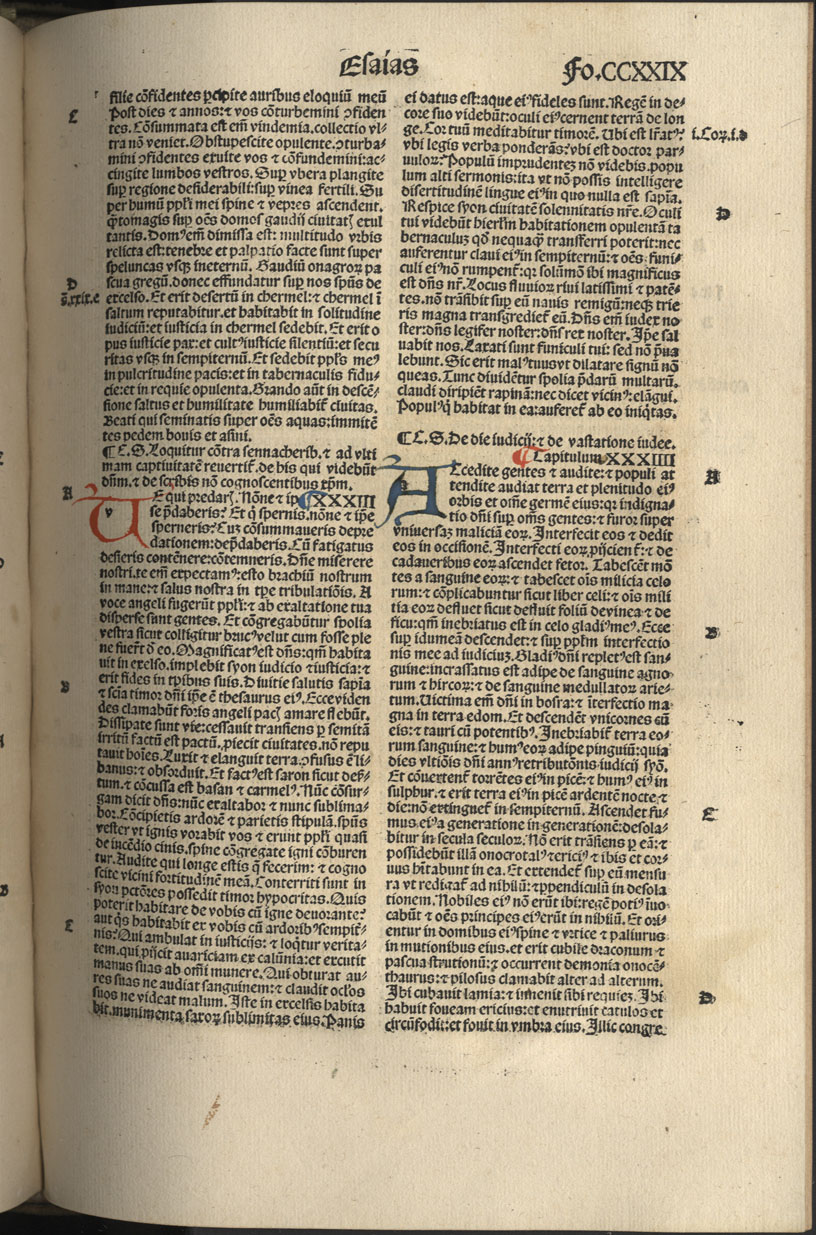 Esaias
Fo.CCXXIX
filie cõfidentes pcipite auribus eloquiũ meũ
Post dies ⁊ annos:⁊ vos cõturbemini ↄfiden
tes. Cõsummata est em̃ vindemia.collectio vl⸗
tra nõ veniet. Obstupescite opulente.ↄturba⸗
mini ↄfidentes exuite vos ⁊ cõfundemini:ac⸗
cingite lumbos vestros. Suꝑ vbera plangite
suꝑ regione desiderabili:suꝑ vinea fertili. Su
per humũ ppľi mei spine ⁊ vepres ascendent.
q̃tomagis suꝑ oẽs domos gaudij ciuitatꝭ exul
tantis. Domꝰ em̃ dimissa est: multitudo vrbis
relicta est:tenebre et palpatio facte sunt super
speluncas vsqꝫ ineternũ. Gaudiũ onagroꝝ pa
scua gregũ.donec effundatur suꝑ nos spũs de
excelso. Et erit desertũ in chermel:⁊ chermel ĩ
saltum reputabitur.et habitabit in solitudine
iudiciũ:et iusticia in chermel sedebit. Et erit o
pus iusticie pax:et cultꝰ iusticie silentiũ:et secu
ritas vsqꝫ in sempiternũ. Et sedebit ppľs meꝰ
in pulcritudine pacis:et in tabernaculis fidu⸗
cie:et in requie opulenta. Grando aũt in descẽ⸗
sione saltus et humilitate humiliabiť ciuitas.
Beati qui seminatis super oẽs aquas:immitẽ
tes pedem bouis et asini.
¶ C.S. Loquitur cõtra sennacherib.⁊ ad vlti
mam captiuitatẽ reuertiť.de his qui videbũt
dñm.⁊ de scribis nõ cognoscentibus xp̃m.
¶XXXIII
VE qui predarꝭ. Nõne ⁊ ip
se p̃daberis? Et q̃ spernis.nõne ⁊ ip̃e
sperneris? Cuꝫ cõsummaueris depre
dationem:dep̃daberis. Cũ fatigatus
desieris contẽnere:cõtemneris. Dñe miserere
nostri.te em̃ expectamꝰ:esto brachiũ nostrum
in mane:⁊ salus nostra in tp̃e tribulatiõis. A
voce angeli fugerũt ppľi:⁊ ab exaltatione tua
disperse sunt gentes. Et cõgregabũtur spolia
vestra sicut colligitur brucꝰ velut cum fosse ple
ne fuerĩt ď eo. Magnificatꝰ est dñs:qm̃ habita
uit in excelso.impleuit syon iudicio ⁊ iusticia:⁊
erit fides in tꝑibus suis. Diuitie salutis sapiẽa
⁊ scia timor dñi ip̃e ẽ thesaurus eiꝰ. Ecce viden
des clamabũt foris angeli pacꝭ amare flebũt.
Dissipate sunt vie:cessauit transiens ꝑ semitã
irritũ factũ est pactũ. ꝓiecit ciuitates.nõ repu
tauit hoĩes. Luxit ⁊ elanguit terra.ↄfusus ẽ li⸗
banus:⁊ obsorduit. Et factꝰ est saron sicut deẞ⸗
tum.⁊ cõcussa est basan ⁊ carmelꝰ. Nũc cõsur⸗
gam dicit dñs:nũc exaltabor ⁊ nunc sublima⸗
bor. Cõcipietis ardorẽ ⁊ parietis stipulã.spũs
vester vt ignis vorabit vos ⁊ erunt ppľi quasi
de incẽdio cinis.spine cõgregate igni cõburen
tur. Audite qui longe estis q̃ fecerim: ⁊ cogno
scite vicini fortitudinẽ meã. Conterriti sunt in
syon pctõres possedit timor hypocritas. Quis
poterit habitare de vobis cũ igne deuorante?
aut q̃s habitabit ex vobis cũ ardoribꝰ sempiť⸗
nis? Qui ambulat in iusticijs: ⁊ loq̃tur verita⸗
tem.qui ꝓijcit auariciam ex calũnia:et excutit
manus suas ab om̃i munere. Qui obturat au⸗
res suas ne audiat sanguinem:⁊ claudit ocľos
suos ne videat malum. Iste in excelsis habita
bit.munimenta saxoꝝ sublimitas eius. Panis
ei datus est:aque eiꝰ fideles sunt. Regẽ in de⸗
core suo videbũt:oculi eiꝰ cernent terrã de lon
ge. Cor tuũ meditabitur timorẽ. Ubi est lr̃atꝰ?
vbi legis verba ponderãs? vbi est doctor par⸗
uuloꝝ? Populũ imprudenteꝫ nõ videbis.popu
lum alti sermonis:ita vt nõ possis intelligere
disertitudinẽ lingue eiꝰ in quo nulla est sapĩa.
Respice syon ciuitatẽ solennitatis nr̃e. Oculi
tui videbũt hierľm habitationem opulentã ta
bernaculuꝫ qď nequaq̃ꝫ transferri poterit:nec
auferentur claui eiꝰ in sempiternũ:⁊ oẽs funi⸗
culi eiꝰ nõ rumpenť:qꝛ solũmõ ibi magnificus
est dñs nr̃. Locus fluuioꝝ riui latissimi ⁊ patẽ⸗
tes.nõ trãsibit suꝑ eũ nauis remigũ:neqꝫ trie
ris magna transgredieť eũ. Dñs em̃ iudex no⸗
ster:dñs legifer noster:dñs rex noster. Ip̃e sal
uabit nos. Laxati sunt funiculi tui: sed nõ p̃ua
lebunt. Sic erit malꝰ tuus vt dilatare signũ nõ
queas. Tunc diuidẽtur spolia p̃darũ multarũ.
claudi diripiẽt rapinã:nec dicet vicinꝰ:elãgui.
Populꝰ q̃ habitat in ea:aufereť ab eo iniq̃tas.
¶ C.S. De die iudicij:⁊ de vastatione iudee.
¶ Capitulum XXXIIII
ACcedite gentes ⁊ audite:⁊ populi at
tendite audiat terra et plenitudo eiꝰ
orbis et om̃e germẽ eius:qꝛ indigna⸗
tio dñi suꝑ om̃s gentes:⁊ furor super
vniuersaꝫ maliciã eoꝝ. Interfecit eos ⁊ dedit
eos in occisionẽ. Interfecti eoꝝ ꝓijcienť:⁊ de
cadaueribus eoꝝ ascendet fetor. Tabescẽt mõ
tes a sanguine eoꝝ:⁊ tabescet oĩs milicia celo
rum:⁊ cõplicabuntur sicut liber celi:⁊ oĩs mili
tia eoꝝ defluet sicut defluit foliũ de vinea ⁊ de
ficu:qm̃ inebriatus est in celo gladiꝰ meꝰ. Ecce
suꝑ idumeã descendet:⁊ suꝑ ppľm interfectio
nis mee ad iudiciuꝫ. Gladiꝰ dñi repletꝰ est san⸗
guine:incrassatus est adipe de sanguine agno⸗
rum ⁊ hircoꝝ:⁊ de sanguine medullatoꝝ arie⸗
tum. Uictima em̃ dñi in bosra:⁊ ĩterfectio ma
gna in terra edom. Et descendẽt vnicornes cũ
eis:⁊ tauri cũ potentibꝰ. Inebriabiť terra eo⸗
rum sanguine:⁊ humꝰ eoꝝ adipe pinguiũ:quia
dies vltiõis dñi annꝰ retributõnis iudicij syõ.
Et cõuertenť torrẽtes eiꝰ in picẽ:⁊ humꝰ eiꝰ in
sulphur.⁊ erit terra eiꝰ in picẽ ardentẽ nocte ⁊
die:nõ extingueť in sempiternũ. Ascendet fu⸗
mus eiꝰ a generatione in generationẽ:desola⸗
bitur in secula seculoꝝ. Nõ erit trãsiens ꝑ eã:⁊
possidebũt illã onocrotalꝰ ⁊ ericiꝰ ⁊ ibis et cor⸗
uus hĩtabunt in ea. Et extendeť suꝑ eũ mensu
ra vt redigať ad nihilũ:⁊ ꝑpendiculũ in desola
tionem. Nobiles eiꝰ nõ erũt ibi:regẽ potiꝰ ĩuo⸗
cabũt ⁊ oẽs principes eiꝰ erũt in nihilũ. Et ori⸗
entur in domibus eiꝰ spine ⁊ vrtice ⁊ paliurus
in munitionibus eius.et erit cubile draconum ⁊
pascua strutionũ:⁊ occurrent demonia onocẽ⸗
thaurus:⁊ pilosus clamabit alter ad alterum.
Ibi cubauit lamia:⁊ inuenit sibi requieꝫ. Ibi
habuit foueam ericius:et enutriuit catulos et
circũfodit:et fouit in vmbra eius. Illic congre
C
D
A
B
C
i.Coꝝ.i.d
D
A
B
C
D